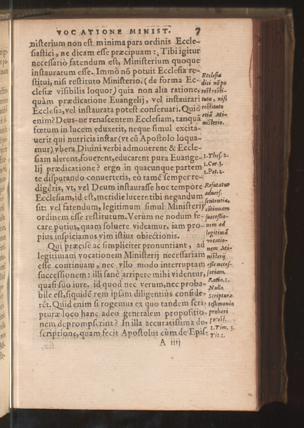 VOCATIONE MINIST. 7
nisterium non est minima pars ordinis Eccle-
siastici, ne dicam esse præcipuam: Tibi igitur
necessariò fatendum est, Ministerium quoque
instauratum esse. Immò nō potuit Ecclesia re-
stitui, nisi restituto Ministerio, (de forma Ec-
clesiæ visibilis loquor) quia non alia ratione,
quàm prædicatione Euangelij, vel instaurari
Ecclesia, vel instaurata potest conseruari. Quid
enim? Deus ne renascentem Ecclesiam, tanquā
fœtum in lucem eduxerit, neque simul excita-
uerit qui nutricis instar (vt cū Apostolo loqua-
mur) vbera Diuini verbi admouerent & Eccle-
siam alerent, fouerent, educarent pura Euange-
lij prædicatione? ergo in quacunque partem
te disputando conuerteris, eò tamē semper re-
digêris, vt, vel Deum instaurasse hoc tempore
Ecclesiam, id est, nos fidei lucere tibi negandum
sit: vel fatendum, legitimum simul Ministerij
ordinem esse restitutum. Verùm ne nodum se-
care potius, quam soluere videamur, iam pro-
pius inspiciamus vim istius obiectionis.
Qui præcisè ac simpliciter pronuntiant, ad
legitimam vocationem Ministerij necessariam
esse continuam, nec vllo modo interruptam
successionem: illi sanè arripere mihi videntur,
quasi suo iure, id quod nec verum, nec proba-
bile est, siquidē rem ipsam diligentiùs conside-
rēt. Quid enim si rogemus ex quo tandem scri-
pturæ loco hanc adeò generalem propositio-
nem deprompserint? In illa accuratissima de-
scriptione, quam fecit Apostolus cùm de Epis-
A iiij
Ecclesia
dici nō po
test resti-
tuta, nisi
restituto
etiā Mi-
nisterio.
1. Thes. 2.
1. Cor. 3.
1. Pet. 2.
Refutatur
aduers.
sententia,
successio-
nem ad
legitimā
vocatio-
nem Mi-
nisterij
esse neces-
sariam.
Ratio. 1.
Nulla
scripturæ
testimonio
probari
potest.
1. Tim. 3.
Tit. 1.